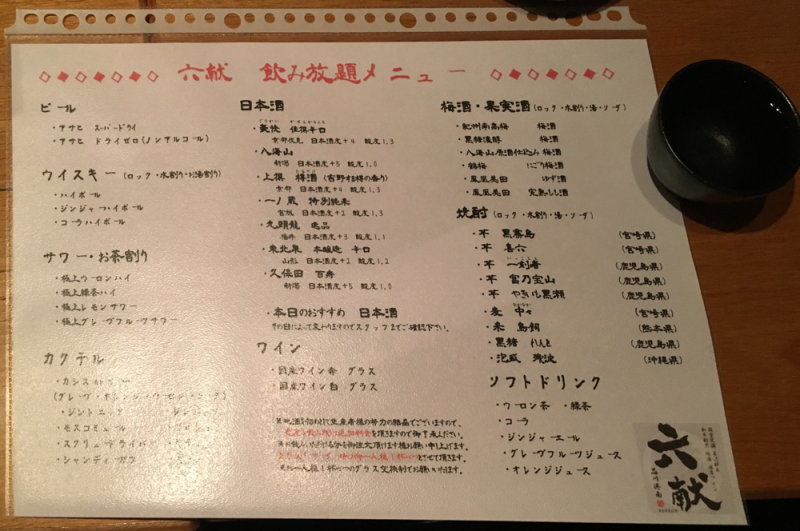 六献 飲み放題メニュー
ビール
・アサヒ スーパードライ
・アサヒ ドライゼロ(ノンアルコール)
ウイスキー (ロック・水割り・お湯割り)
・ハイボール
・ジンジャーハイボール
・コーラハイボール
サワー・お茶割り
・極上ウーロンハイ
・極上緑茶ハイ
・極上レモンサワー
・極上グレープフルーツサワー
カクテル
・カシス
・ジントニック
・モスコミュール
・スクリュードライバー
・シャンディガフ
日本酒
・豪快 佳撰辛口
京都伏見 日本酒度+4 酸度1.3
・八海山
新潟 日本酒度+5 酸度1.0
・上撰 樽酒 (吉野杉樽の香り)
京都 日本酒度+4 酸度1.3
・一ノ蔵 特別純米
宮城 日本酒度+2 酸度1.3
・九頭龍 逸品
福井 日本酒度+3 酸度1.1
・東北泉 本醸造 辛口
山形 日本酒度+2 酸度1.2
・久保田 百寿
新潟 日本酒度+5 酸度1.0
・本日のおすすめ 日本酒
その日によって変わりますのでスタッフまでご確認下さい。
ワイン
・国産ワイン赤 グラス
・国産ワイン白 グラス
梅酒・果実酒 (ロック・水割り・湯・ソーダ)
・紀州南高梅 梅酒
・黒糖濃醇 梅酒
・八海山の原酒仕込み 梅酒
・鶴梅 にごり梅酒
・鳳凰美田 ゆず酒
・鳳凰美田 完熟もも酒
焼酎 (ロック・水割り・湯・ソーダ)
・芋 黒霧島 (宮崎県)
・芋 喜六 (宮崎県)
・芋 一刻者 (鹿児島県)
・芋 富乃宝山 (鹿児島県)
・芋 やきいも黒瀬 (鹿児島県)
・麦 中々 (宮崎県)
・米 鳥飼 (熊本県)
・黒糖 れんと (鹿児島県)
・泡盛 (沖縄県)
ソフトドリンク
・ウーロン茶 ・緑茶
・コーラ
・ジンジャーエール
・グレープフルーツジュース
・オレンジジュース
六献
品川港南